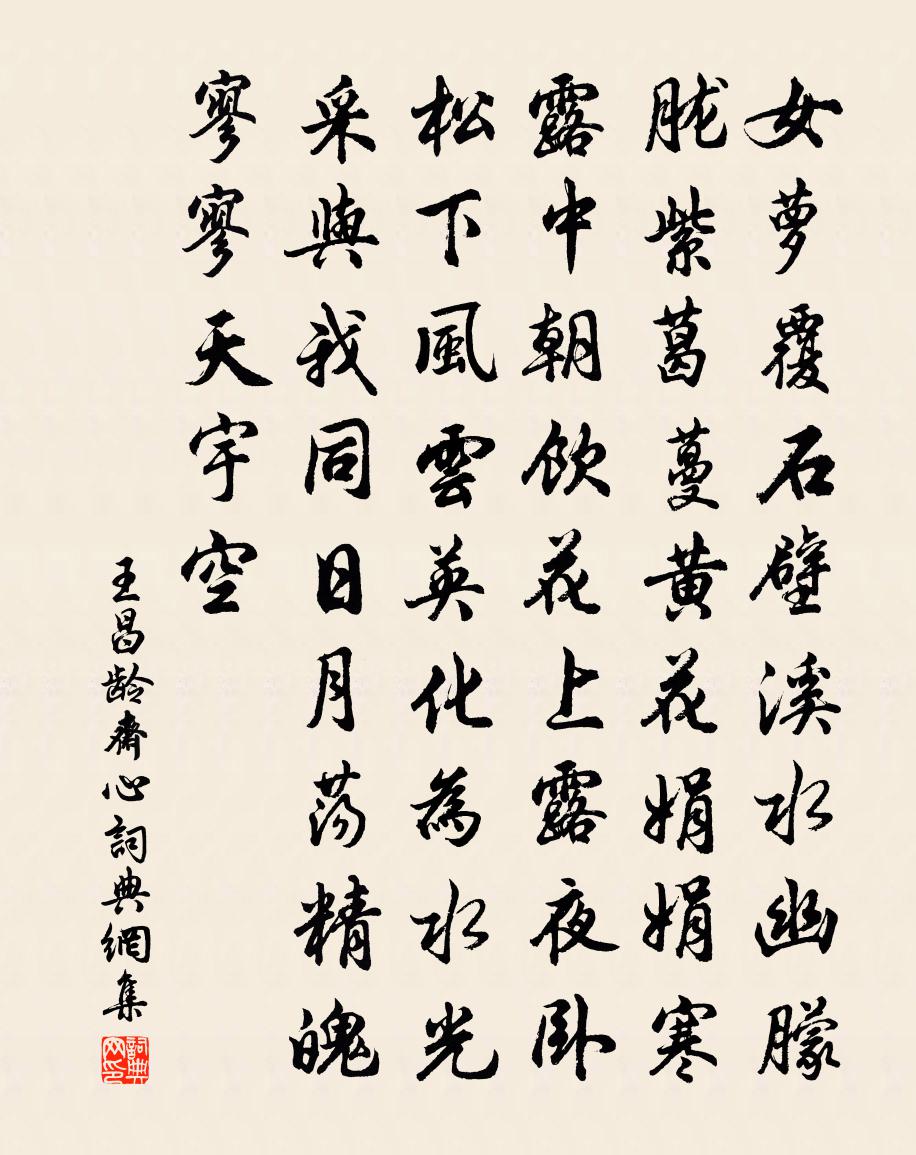 女萝覆石壁溪水幽朦
胧紫葛蔓黄花娟娟寒
露中朝饮花上露夜卧
松下風雲英化為水光
采與我同日月荡精魄
寥寥天宇空
王昌龄齋心詞典網集
詞典网印